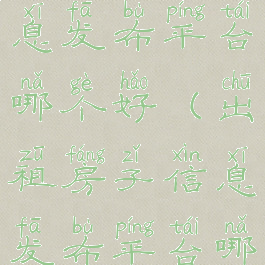 xī fā bù píng tái
息发布平台
nǎ gè hǎo chū
哪个好（出
zū fáng zǐ xìn xī
租房子信息
fā bù píng tái nǎ
发布平台哪